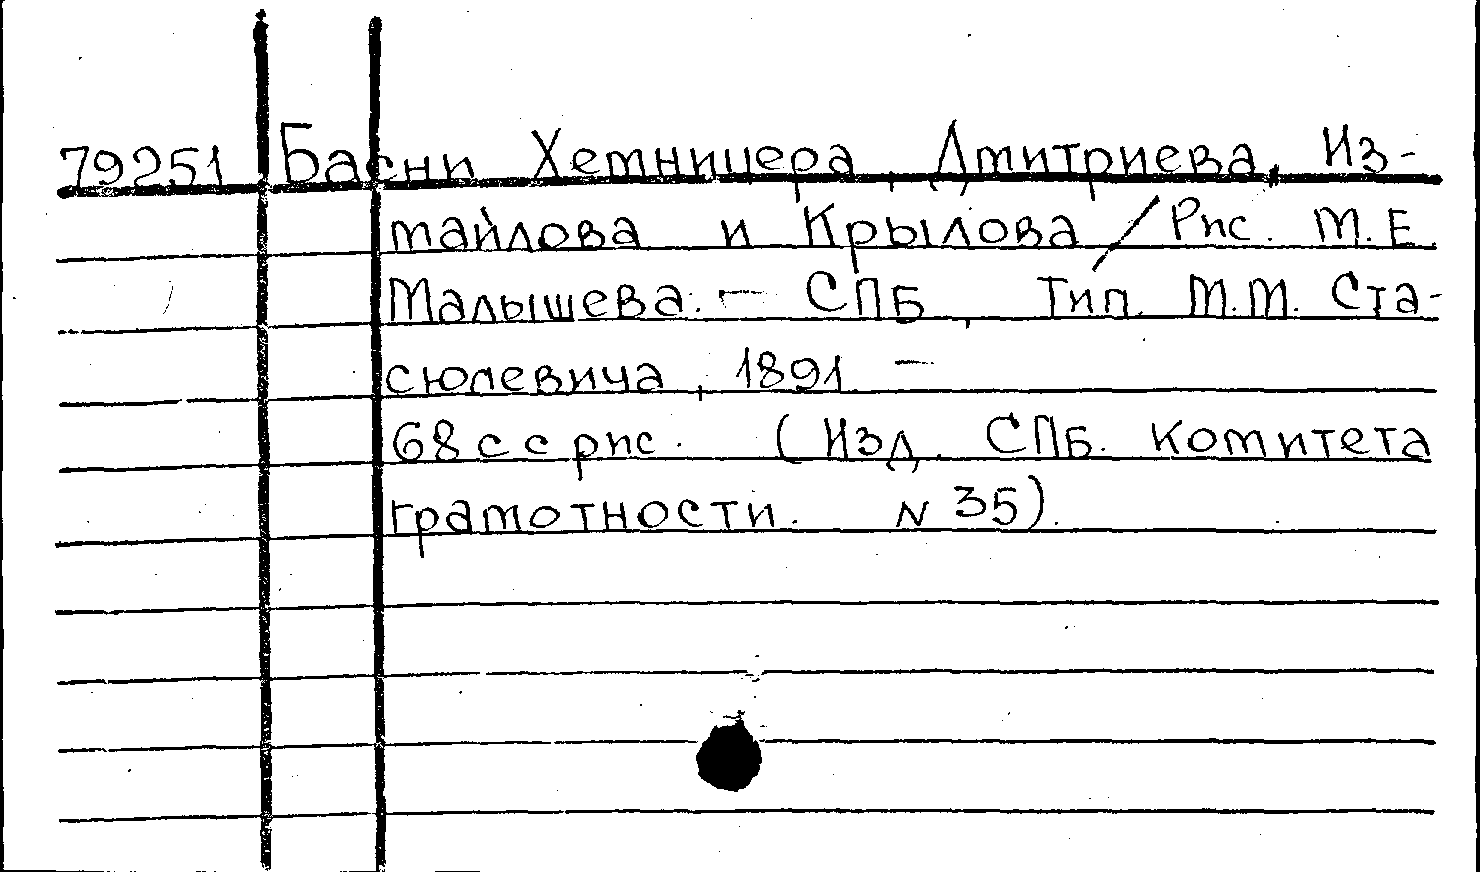 79251 Басни Хемницера, Дмитриева, Из-
майлова и Крылова / Рис. М.Е.
Малышева. – СПБ, Тип. М.М. Ста-
сюлевича, 1891 –
68 с с рис. (Изд. СПБ. Комитета
грамотности. N 35).